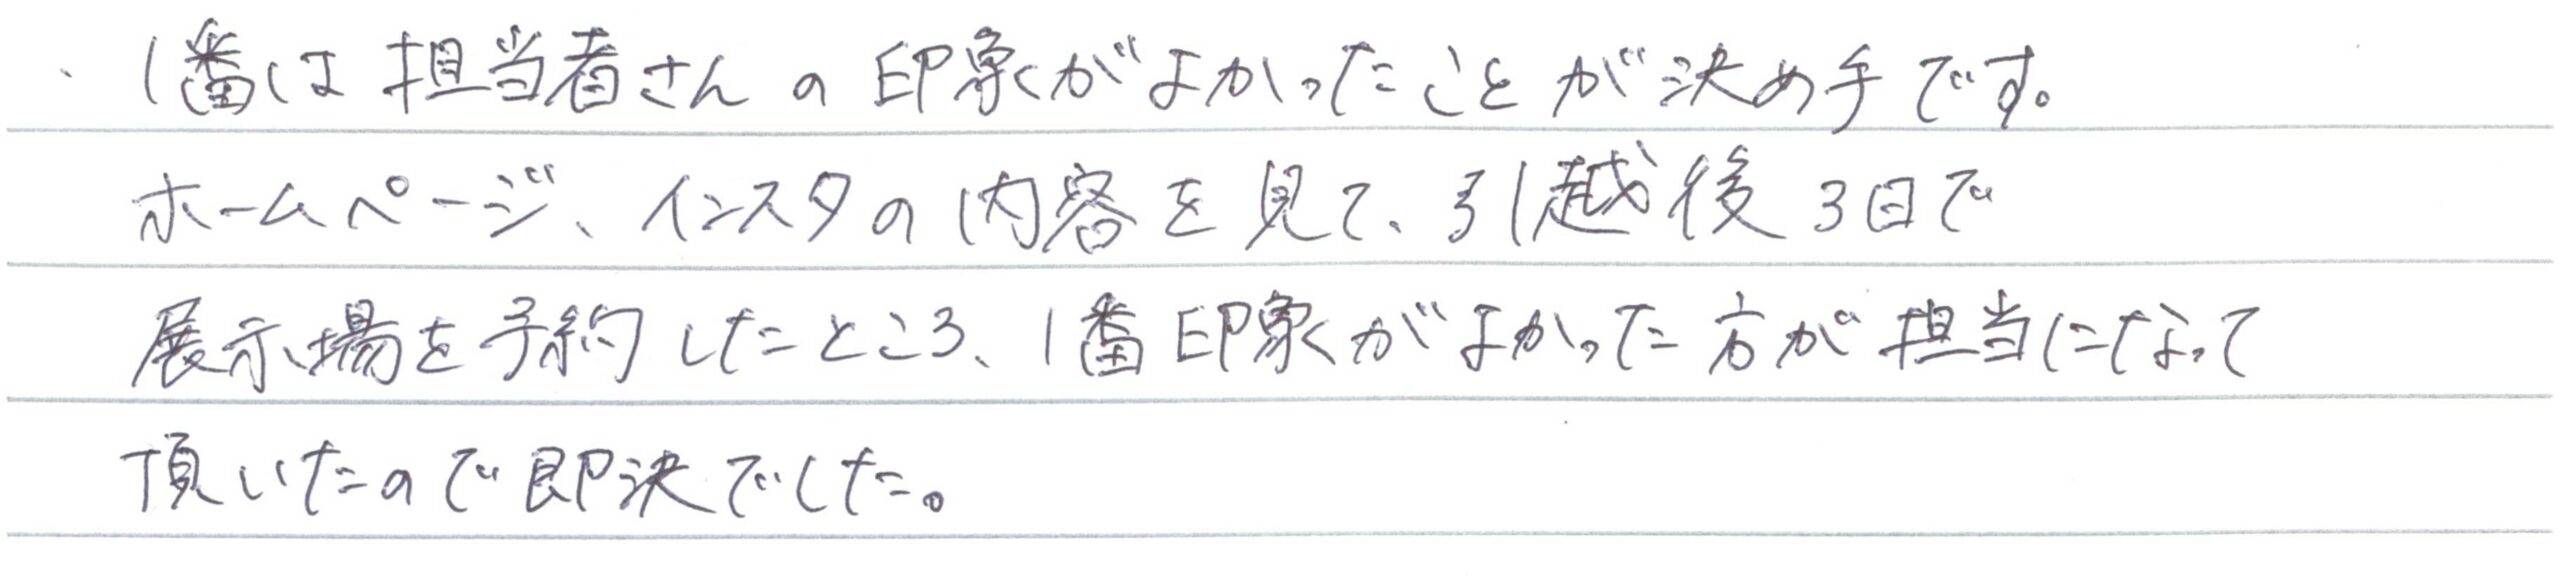 1番は担当者さんの印象がよかったことが決め手です。
ホームページ、インスタの内容を見て、引越後3日で
展示場を予約したところ、1番印象がよかった方が担当になって
頂いたので即決でした。